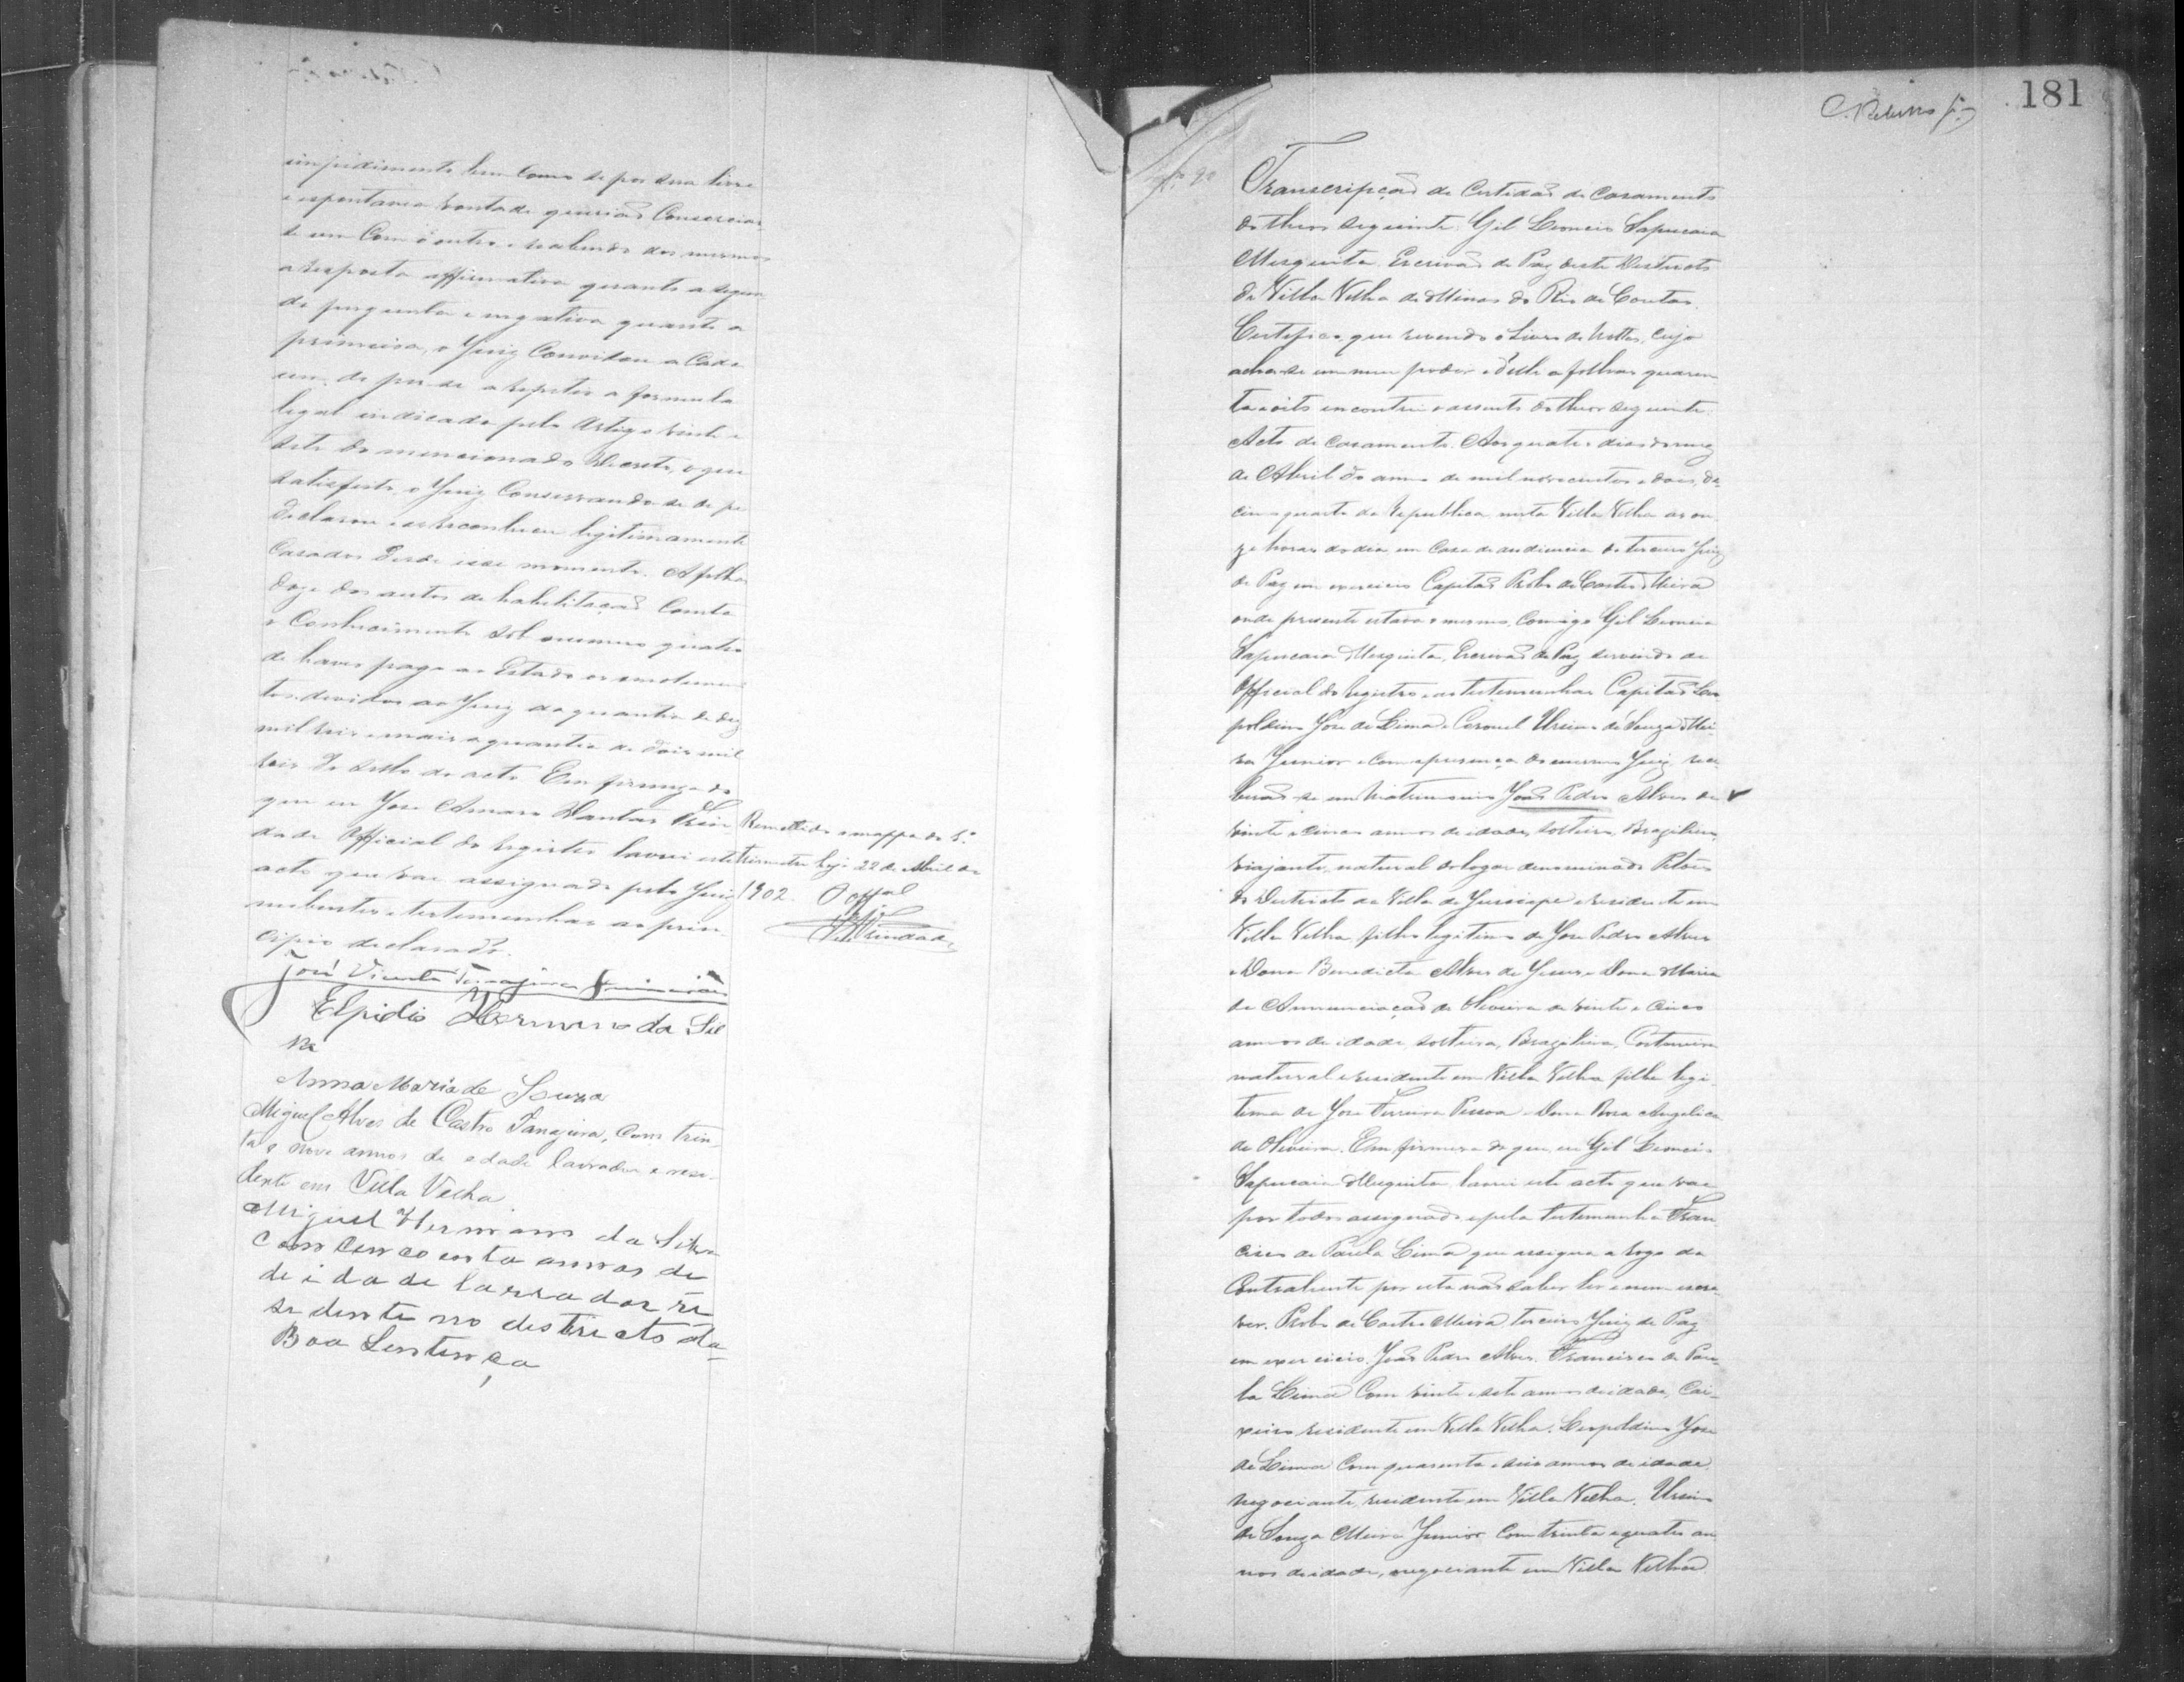 impedimento bem como se por sua livre
e espontanea vontade querião Consorciar
se um Com o outro e recebendo dos mesmos
a resposta affirmativa quanto a segun
da pergunta e negativa quanto a
primeira, o Juiz Convidou a Cada
um de per se a repetir a formula
legal indicada pelo Artigo vinte e
sete do mencionado Decreto, o que
satisfeito, o Juiz Conservando-se de pé
declarou e os reconheceu legitimamente
Casados desde esse momento. A folhas
doze dos autos de habilitação Consta
o Conhecimento sob numero quatro
de haver pago ao Estado os emolumen
tos devidos ao Juiz da quantia de dez
mil reis e mais a quantia de dois mil
reis do sello do acto. Em firmeza do
que eu José Amaro Dantas Trin
dade Official do Registro lavrei este
acto que vae assignado pelo Juiz
nubentes e testemunhas ao prin
cipio declarado.
José Vicente Tanajura
Elpidio Hermano da Sil
va
Anna Maria de Souza
Miguel Alves de Castro Tanajura, com trin
ta e nove annos de edade lavrador e resi-
dente em Villa Velha
Miguel Hermano da Silva
com cencoenta annos de
de idade larrador re
sidente no destricto da
Boa Sentença
Remettido o mappa do 1º
trimestre hoje 22 de Abril de
1902. O offal
Trindade
181
Transcripção da Certidão de Casamento
do theor seguinte: Gil Leoncio Sapucaia
Mesquita, Escrivão de Paz deste Destricto
da Villa Velha de Minas do Rio de Contas.
Certifico que revendo o Livro de Nottas, cujo
acha-se em meu poder e delle a folhas quaren
ta e oito encontrei o assento do theor seguinte:
Acto de Casamento. Aos quatro dias do mez
de Abril do anno de mil novecentos e dois, de-
cimo quarto da Republica nesta Villa Velha as on
ze horas do dia em Casa de audiencia do terceiro Juiz
de Paz em exercicio Capitão Probo de Castro Meira
onde presente estava o mesmo, Comigo Gil Leoncio
Sapucaia Mesquita, Escrivão de Paz servindo de
Official do Registro e as testemunhas Capitão Leo
poldino José de Lima e Coronel Ursino de Souza Mei
ra Junior e com a presença do mesmo Juiz rece
berão-se em Matrimonio João Pedro Alves de
vinte e cinco annos de idade, solteiro, Brazileiro,
viajante, natural do logar denominado
do Destricto da Villa de Jussiape e residente em
Villa Velha, filho legitimo de José Pedro Alves
e Dona Benedicta Alves de Jesus e Dona Maria
da Annunciação de Oliveira de vinte e cinco
annos de idade, solteira, Brazileira, Costureira
natural e residente em Villa Velha filha legi
tima de José Ferreira Pessoa e Dona Rosa Angelica
de Oliveira. Em firmeza do que, eu Gil Leoncio
Sapucaia Mesquita, lavrei este acto que vae
por todos assignado e pela testemunha Fran
cisco de Paula Lima que assigna a rogo da
Contrahente por esta não saber ler e nem escre
ver. Probo de Castro Meira terceiro Juiz de Paz
em exercicio. João Pedro Alves. Francisco de Pau
la Lima Com vinte e sete annos de idade, Cai-
xeiro residente em Villa Velha. Leopoldino José
de Lima Com quarenta e seis annos de idade,
negociante, residente em Villa Velha. Ursino
de Souza Meira Junior Com trinta e quatro an
nos de idade, negociante em Villa Velha